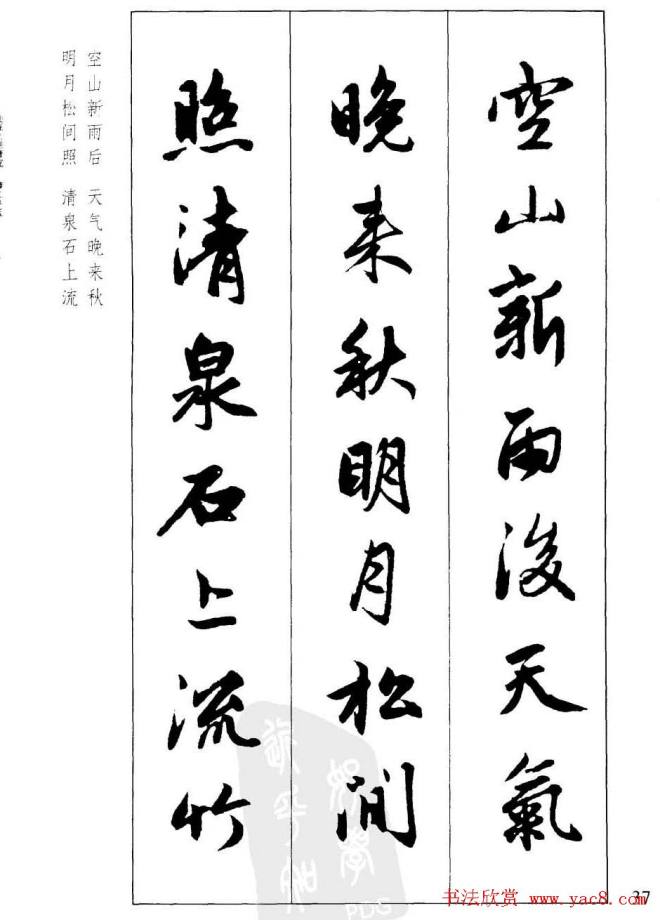 空山新雨後天氣
晚来秋明月松間
照清泉石上流竹
空山新雨后 天气晚来秋
明月松间照 清泉石上流
37
书法欣赏 www.yac8.com
PDG